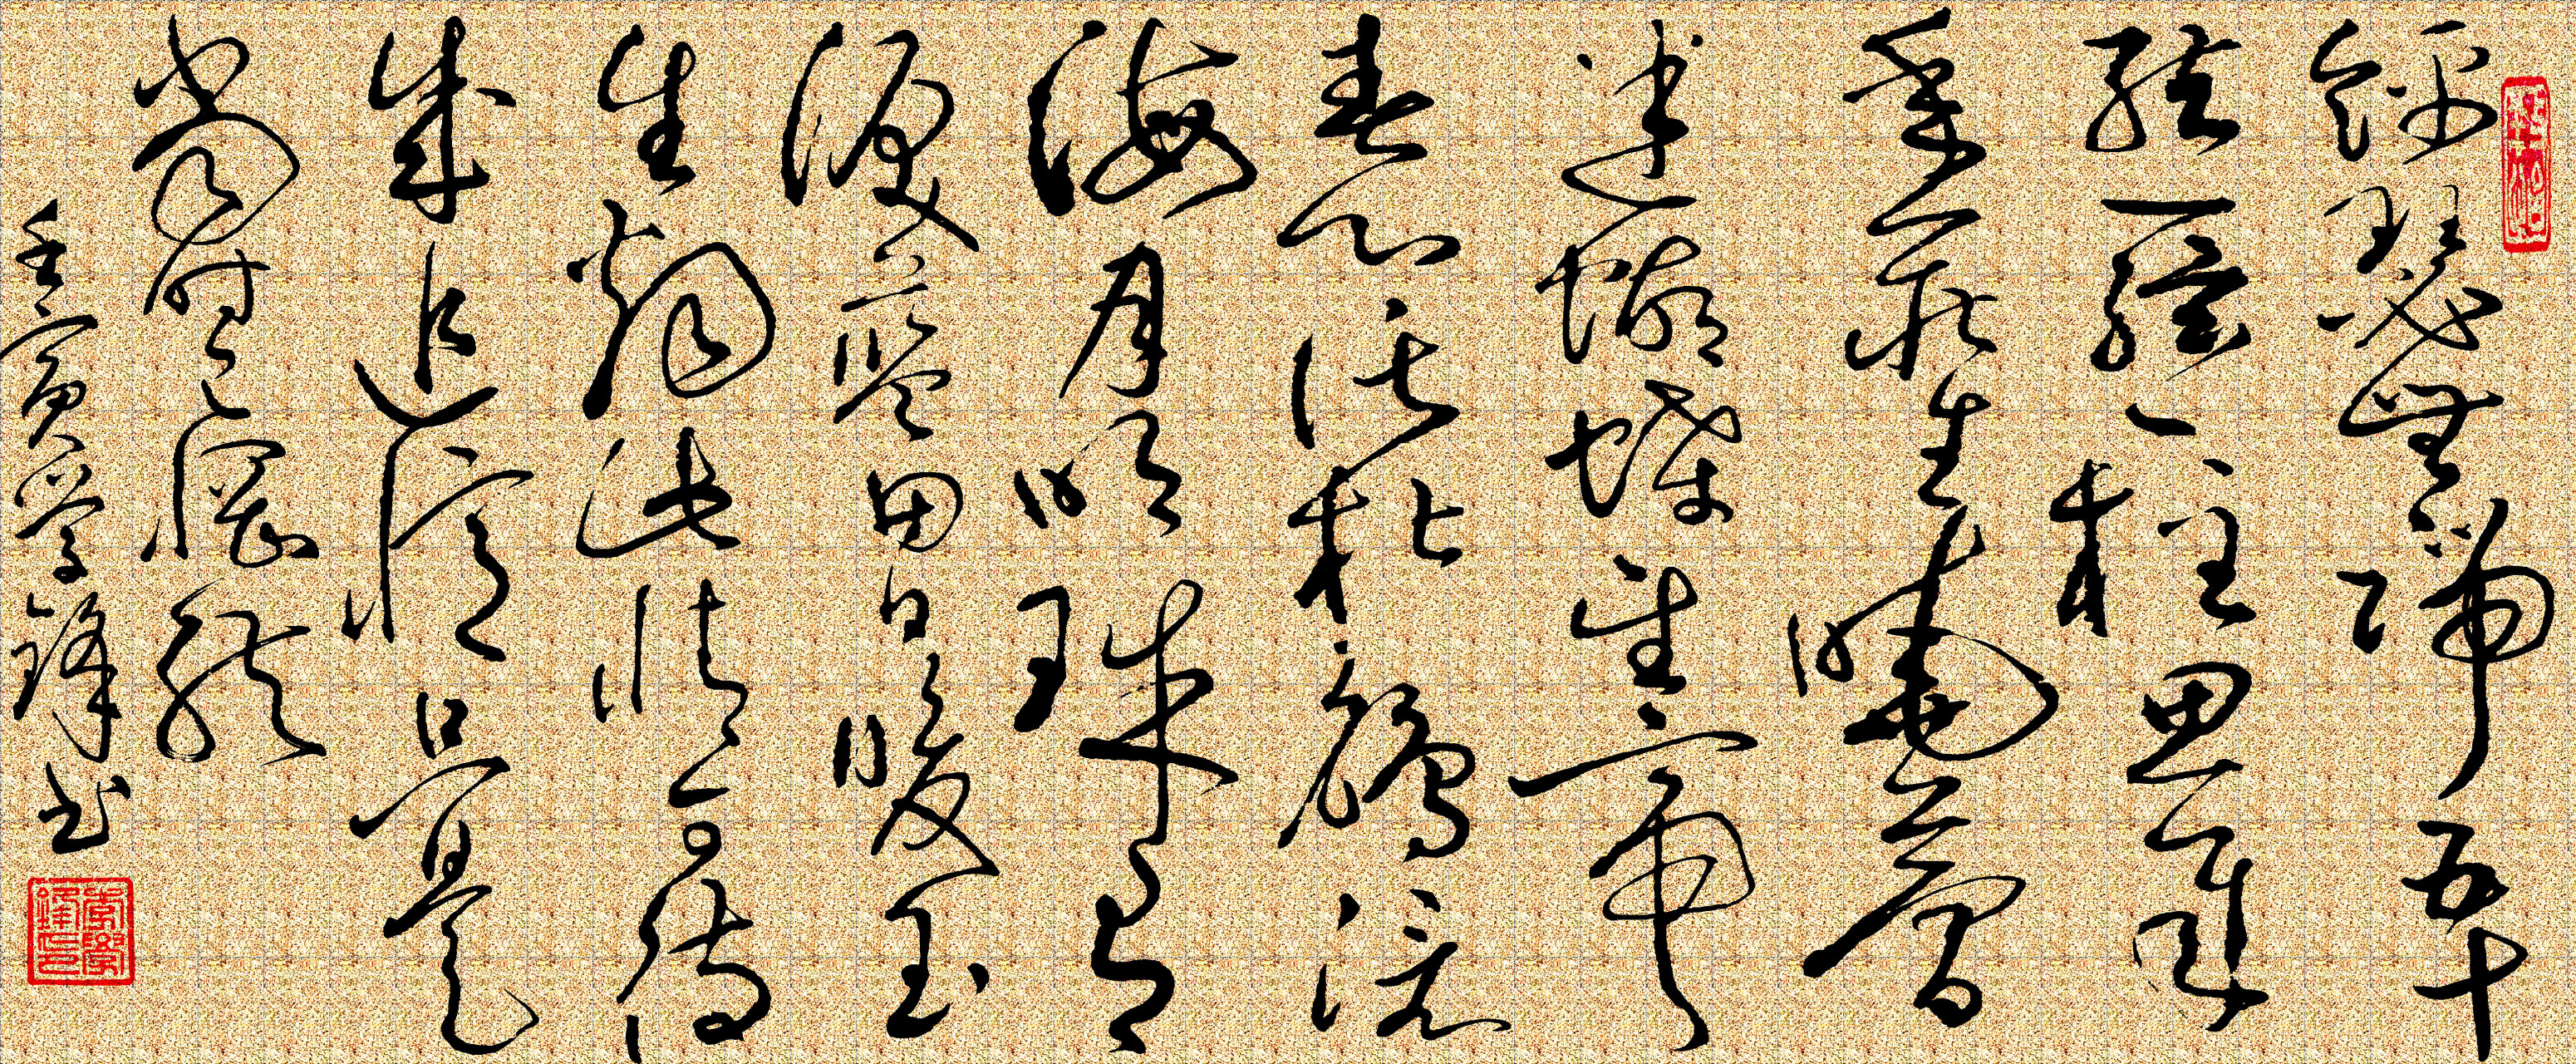 錦瑟無端五十
絃一絃一柱思華
年莊生曉夢
迷蝴蝶望帝
春心託杜鵑滄
海月明珠有
淚藍田日暖玉
生煙此情可待
成追憶只是
當時已惘然
壬寅學鋒书
李學鋒印